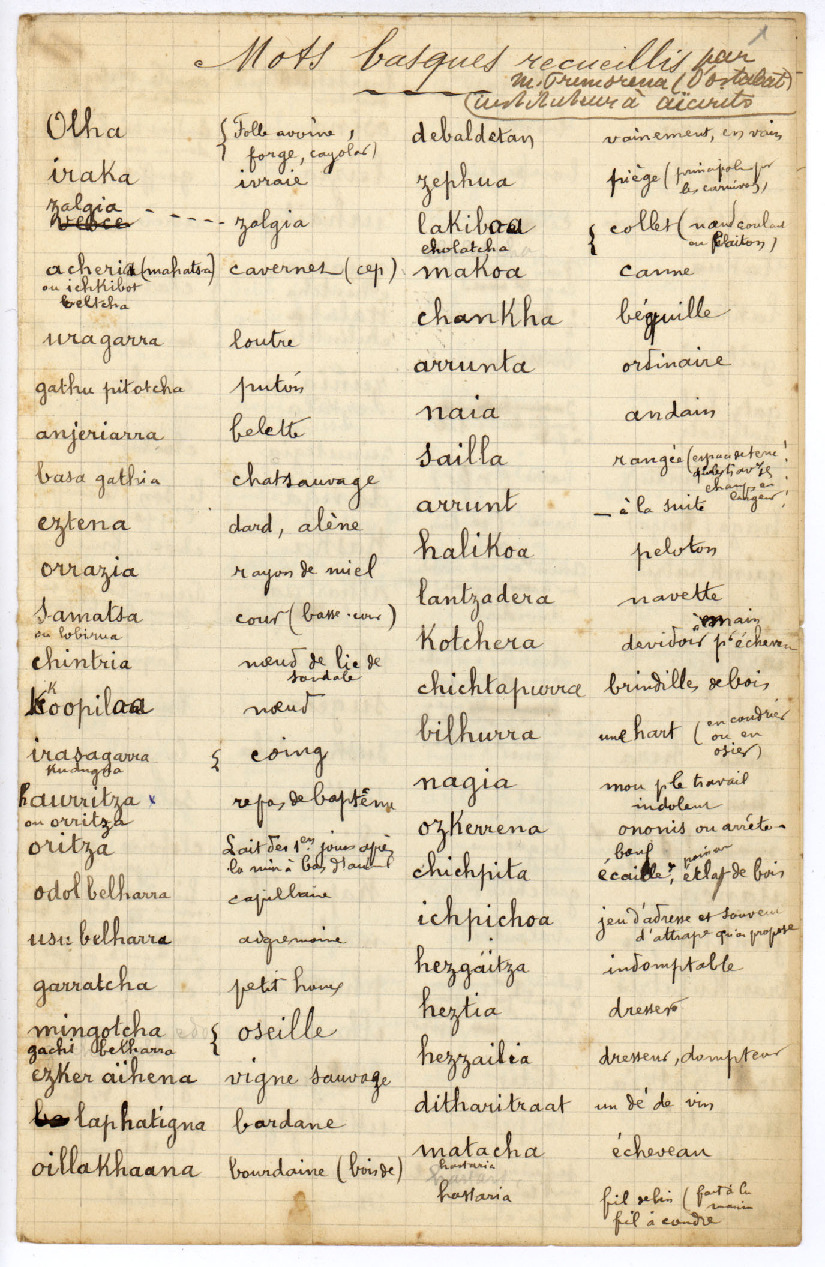 Mots basques recueillis par
M. Irumorena (d'Ostabat)
instituteur à Aïcirits
Olha { Folle avoine,
forge, cayolar)
iraka ivraie
zalgia
vesce - - - - - zalgia
acheria (mahatsa) cavernes (cep)
ou ichkibot
beltcha
uragarra loutre
gathu pitotcha putois
anjeriarra belette
basa gathia chat sauvage
eztena dard, alène
orrazia rayon de miel
samatsa cour (basse-cour)
ou lobirua
chintria nœud de lie de
sandale
Koopilaa nœud
irasagarra { coing
kudugna
haurritza x repas de baptême
ou orritza
oritza Lait des 1ers jours après
la mise à bas
odol belharra capillaire
usu belharra aigremoine
garratcha petit houx
mingotcha { oseille
gachi belharra
ezker aïhena vigne sauvage
laphatigna bardane
oillakhaana bourdaine (bois de)
debaldetan vainement, en vain
zephua piège (principalt pr
les carnivores)
lakibaa { collet (nœud coulant
cholatcha
makoa canne
chankha béquille
arrunta ordinaire
naia andain
sailla rangée (espace de terre
champ en
largeur)
arrunt — à la suite
halikoa peloton
lantzadera navette
à main
Kotchera devidoir pr écheveau
chichtapurra brindilles de bois
bilhurra une hart (en coudrier
ou en
osier)
nagia mou p le travail
indolent
ozkerrena ononis ou arrête-
bœuf
chichpita écaille, éclat de bois
ichpichoa jeu d'adresse et souvent
d'attrape qu'on propose
hezgäitza indomptable
heztia dresser
hezzailia dresseur, dompteur
ditharitraat un dé de vin
matacha écheveau
hastaria
hastaria fil de lin (fait à la
main
fil à coudre